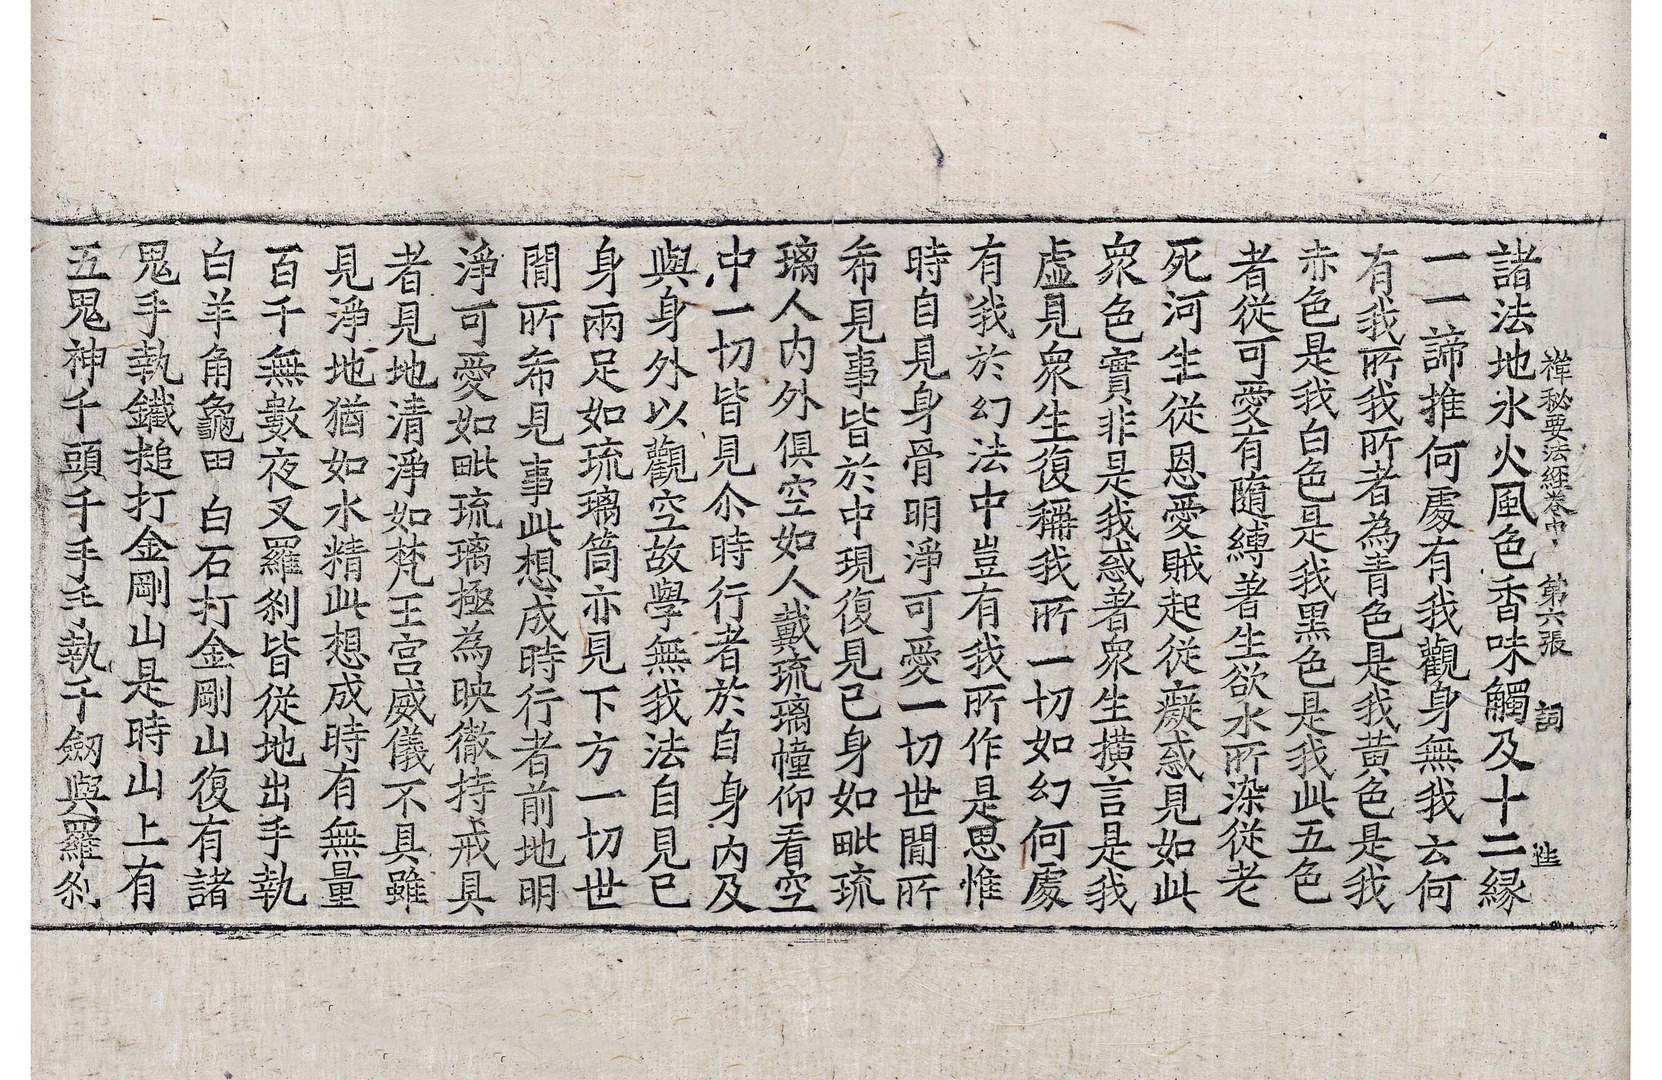 禪秘要法經卷中 第六張 詞
諸法地水火風色香味觸及十二緣
一一諦推何處有我觀身無我云何
有我所我所者為青色是我黃色是我
赤色是我白色是我黑色是我此五色
者從可愛有隨縛著生欲水所染從老
死河生從恩愛賊起從癡惑見如此
眾色實非是我惑著眾生橫言是我
虛見眾生復稱我所一切如幻何處
有我於幻法中豈有我所作是思惟
時自見身骨明淨可愛一切世間所
希見事皆於中現復見已身如毗琉
璃人內外俱空如人戴琉璃幢仰看空
中一切皆見尒時行者於自身內及
與身外以觀空故學無我法自見已
身兩足如琉璃筒亦見下方一切世
間所希見事此想成時行者前地明
淨可愛如毗琉璃極為映徹持戒具
者見地清淨如梵王宮威儀不具雖
見淨地猶如水精此想成時有無量
百千無數夜叉羅剎皆從地出手執
白羊角龜甲白石打金剛山復有諸
鬼手執鐵搥打金剛山是時山上有
五鬼神千頭千手手執千劒與羅剎